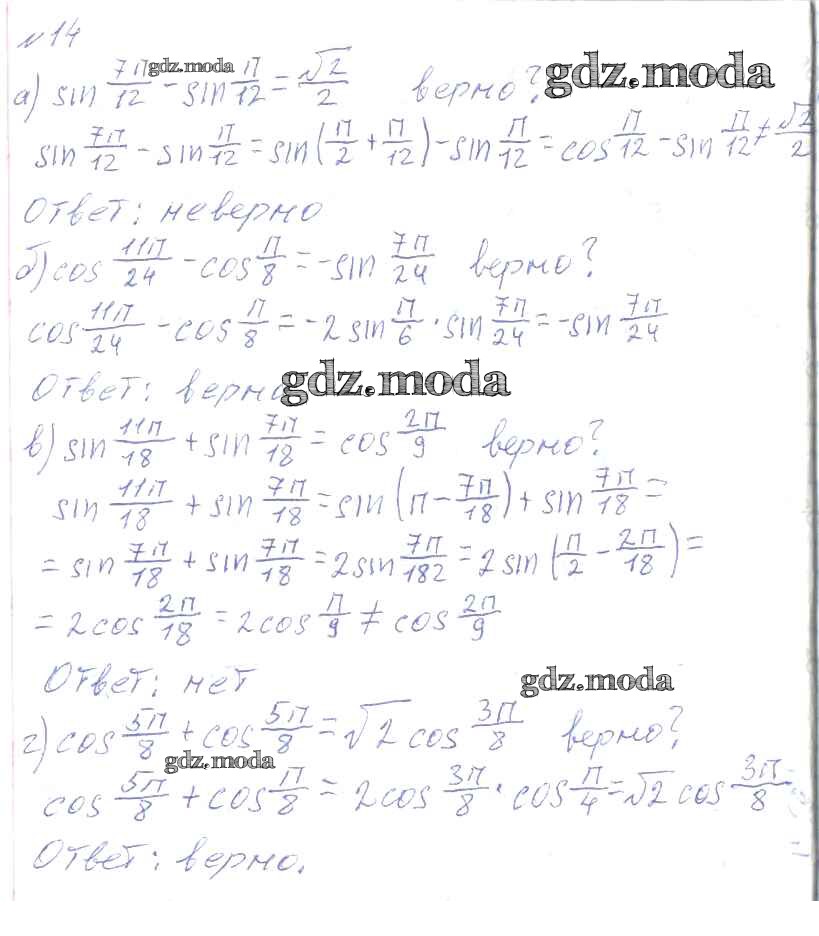 №14
а) sin 7π/12 - sin π/12 = √2/2 верно?
sin 7π/12 - sin π/12 = sin(π/2 + π/12) - sin π/12 = cos π/12 - sin π/12 ≠ √2/2
Ответ: неверно
б) cos 11π/24 - cos π/8 = -sin 7π/24 верно?
cos 11π/24 - cos π/8 = -2 sin π/6 · sin 7π/24 = -sin 7π/24
Ответ: верно
в) sin 11π/18 + sin 7π/18 = cos 2π/9 верно?
sin 11π/18 + sin 7π/18 = sin(π - 7π/18) + sin 7π/18 =
= sin 7π/18 + sin 7π/18 = 2sin 7π/182 = 2 sin(π/2 - 2π/18) =
= 2cos 2π/18 = 2cos π/9 ≠ cos 2π/9
Ответ: нет
г) cos 5π/8 + cos 5π/8 = √2 cos 3π/8 верно?
cos 5π/8 + cos π/8 = 2cos 3π/8 · cos π/4 = √2 cos 3π/8
Ответ: верно.
gdz.moda
gdz.moda
gdz.moda
gdz.moda
gdz.moda